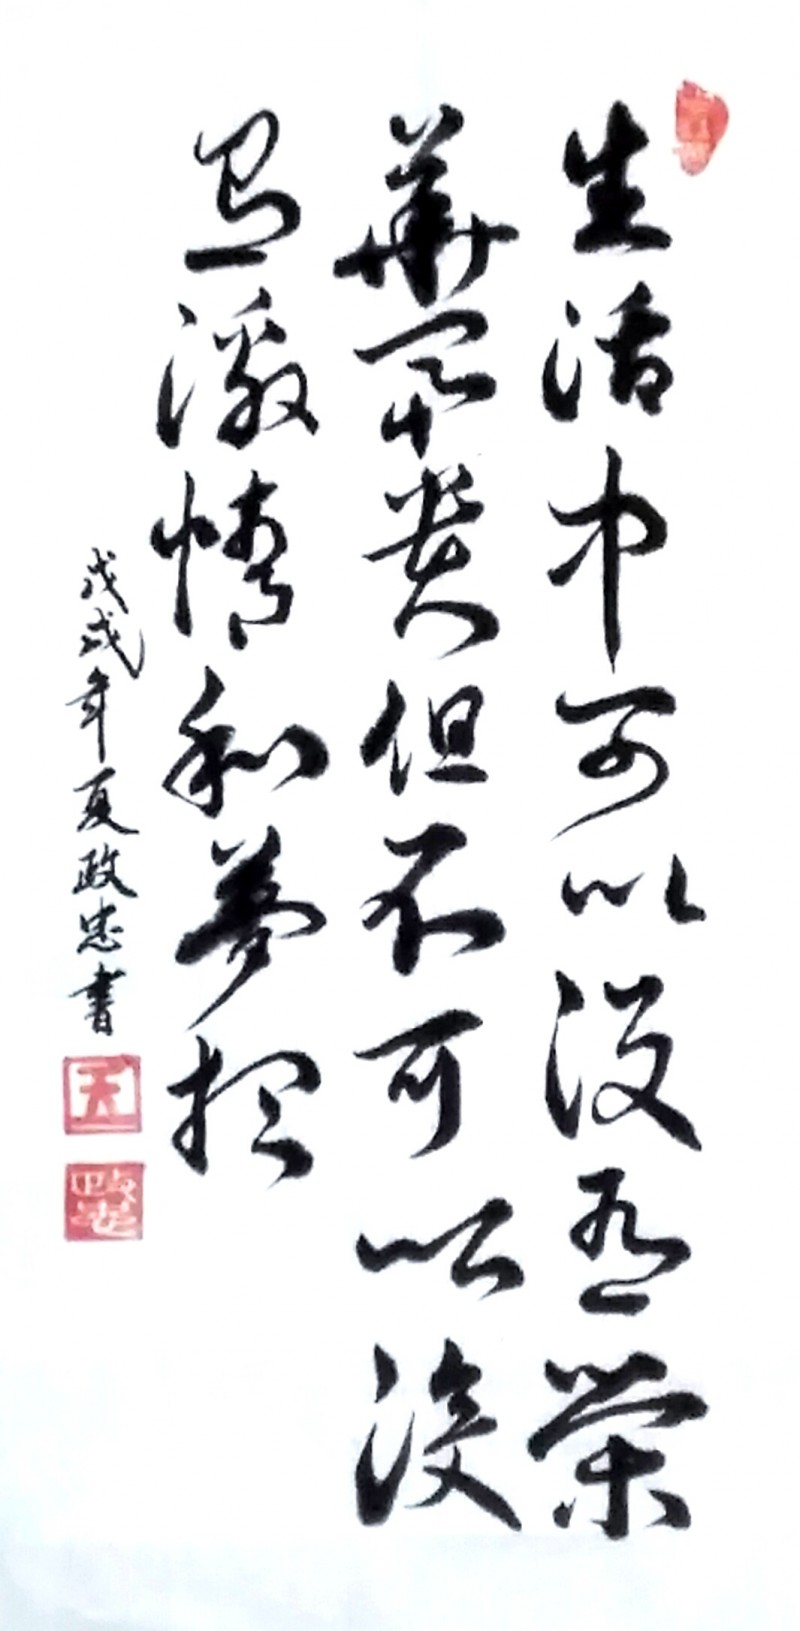 生活中可以没有荣
華富贵但不可以没
有激情和夢想
戊戌年夏政忠書
王